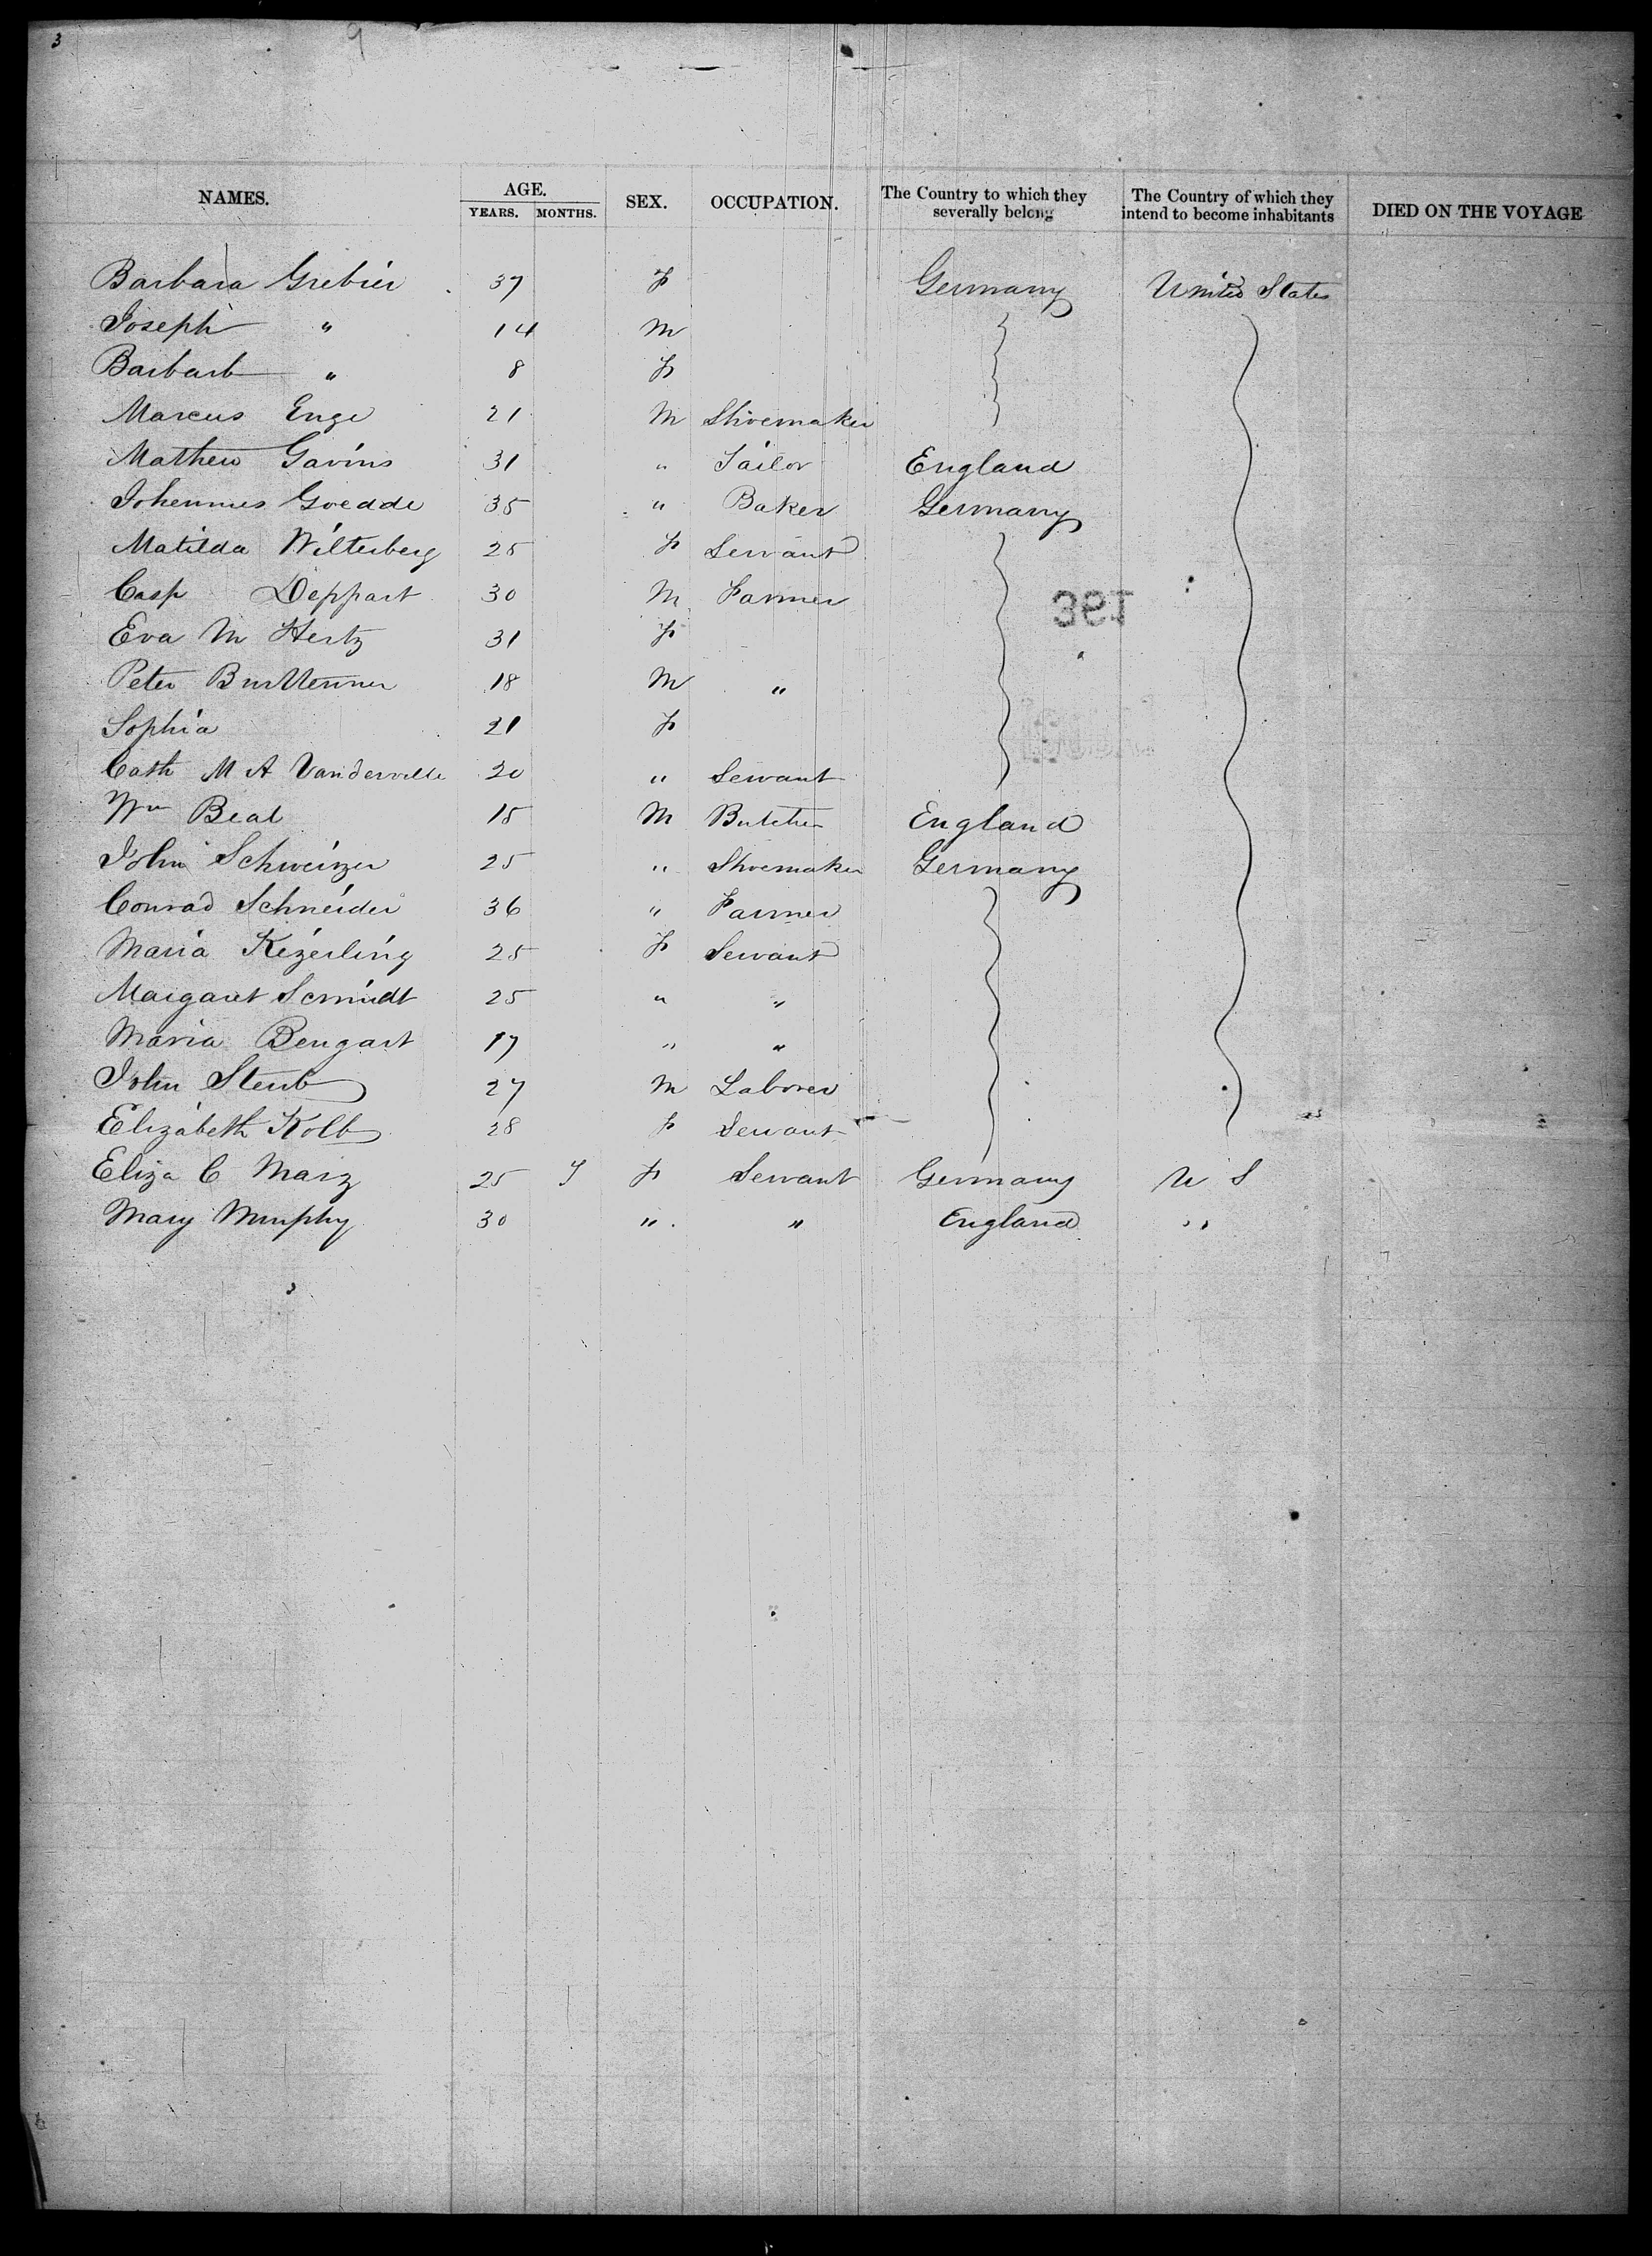 3
9
NAMES. AGE. SEX. OCCUPATION. The Country to which they severally belong The Country of which they intend to become inhabitants DIED ON THE VOYAGE
YEARS. MONTHS.
Barbara Grebier 37 F Germany United States
Joseph " 14 M
Barbarb " 8 F
Marcus Enge 21 M Shoemaker
Mathew Gavins 31 " Tailor England
Johennes Goedde 35 " Baker Germany
Matilda Wilterberg 25 F Servant
Casp Deppart 30 M Farmer
Eva M Hertz 31 F
Peter 18 M "
Sophia 21 F
Cath M A Vandervelle 20 " Servant
Wm Beal 15 M Butcher England
John Schweizer 25 " Shoemaker Germany
Conrad Schneider 36 " Farmer
Maria Kezerling 25 F Servant
Margaret Scmidt 25 " "
Maria Bengart 17 " "
John Steub 27 M Laborer
Elizabeth Kolb 28 F Servant
Eliza C Marz 25 F Servant Germany U S
Mary Murphy 30 " " England "